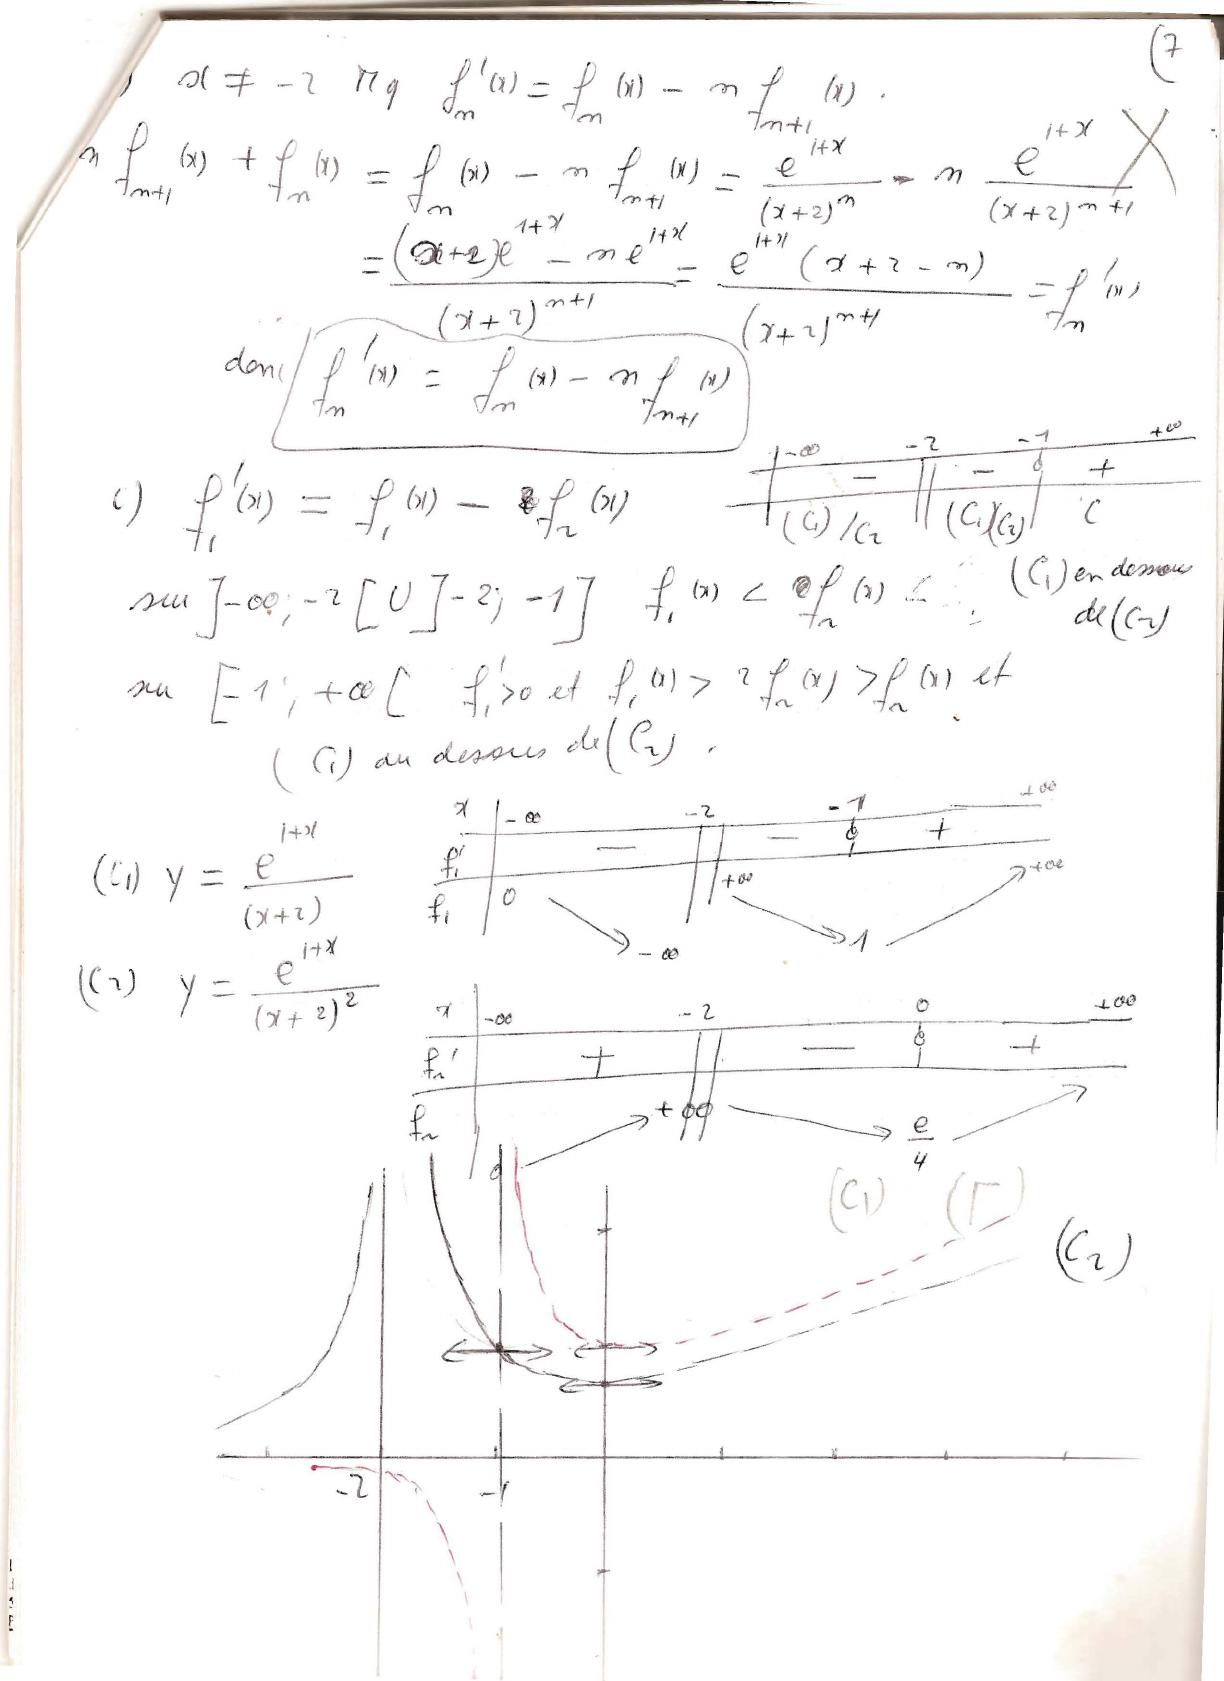 (7
) x ≠ -2 Mq fn'(x) = fn(x) - n fn+1(x).
n fn+1(x) + fn(x) = fn(x) - n fn+1(x) = e^(1+x)/(x+2)^n - n e^(1+x)/(x+2)^(n+1)
= ((x+2)e^(1+x) - n e^(1+x))/(x+2)^(n+1) = e^(1+x)(x+2-n)/(x+2)^(n+1) = fn'(x)
donc fn'(x) = fn(x) - n fn+1(x)
-∞ -2 -1 +∞
- || - 0 +
(C1)/C2 || (C1)(C2) C
c) f1'(x) = f1(x) - f2(x)
sur ]-∞; -2[ U ]-2; -1] f1(x) < f2(x) (C1) en dessous
de (C2)
sur [-1; +∞[ f1' > 0 et f1(x) > 2f2(x) > f2(x) et
(C1) au dessous de (C2).
x | -∞ -2 -1 +∞
f1' | - || - 0 +
f1 | 0 ↘ -∞ || +∞ ↘ 1 ↗ +∞
(C1) y = e^(1+x)/(x+2)
(C2) y = e^(1+x)/(x+2)^2
x | -∞ -2 0 +∞
f2' | + || - 0 +
f2 | 0 ↗ +∞ || ↘ e/4 ↗
(C1) (Γ)
(C2)
-2 -1